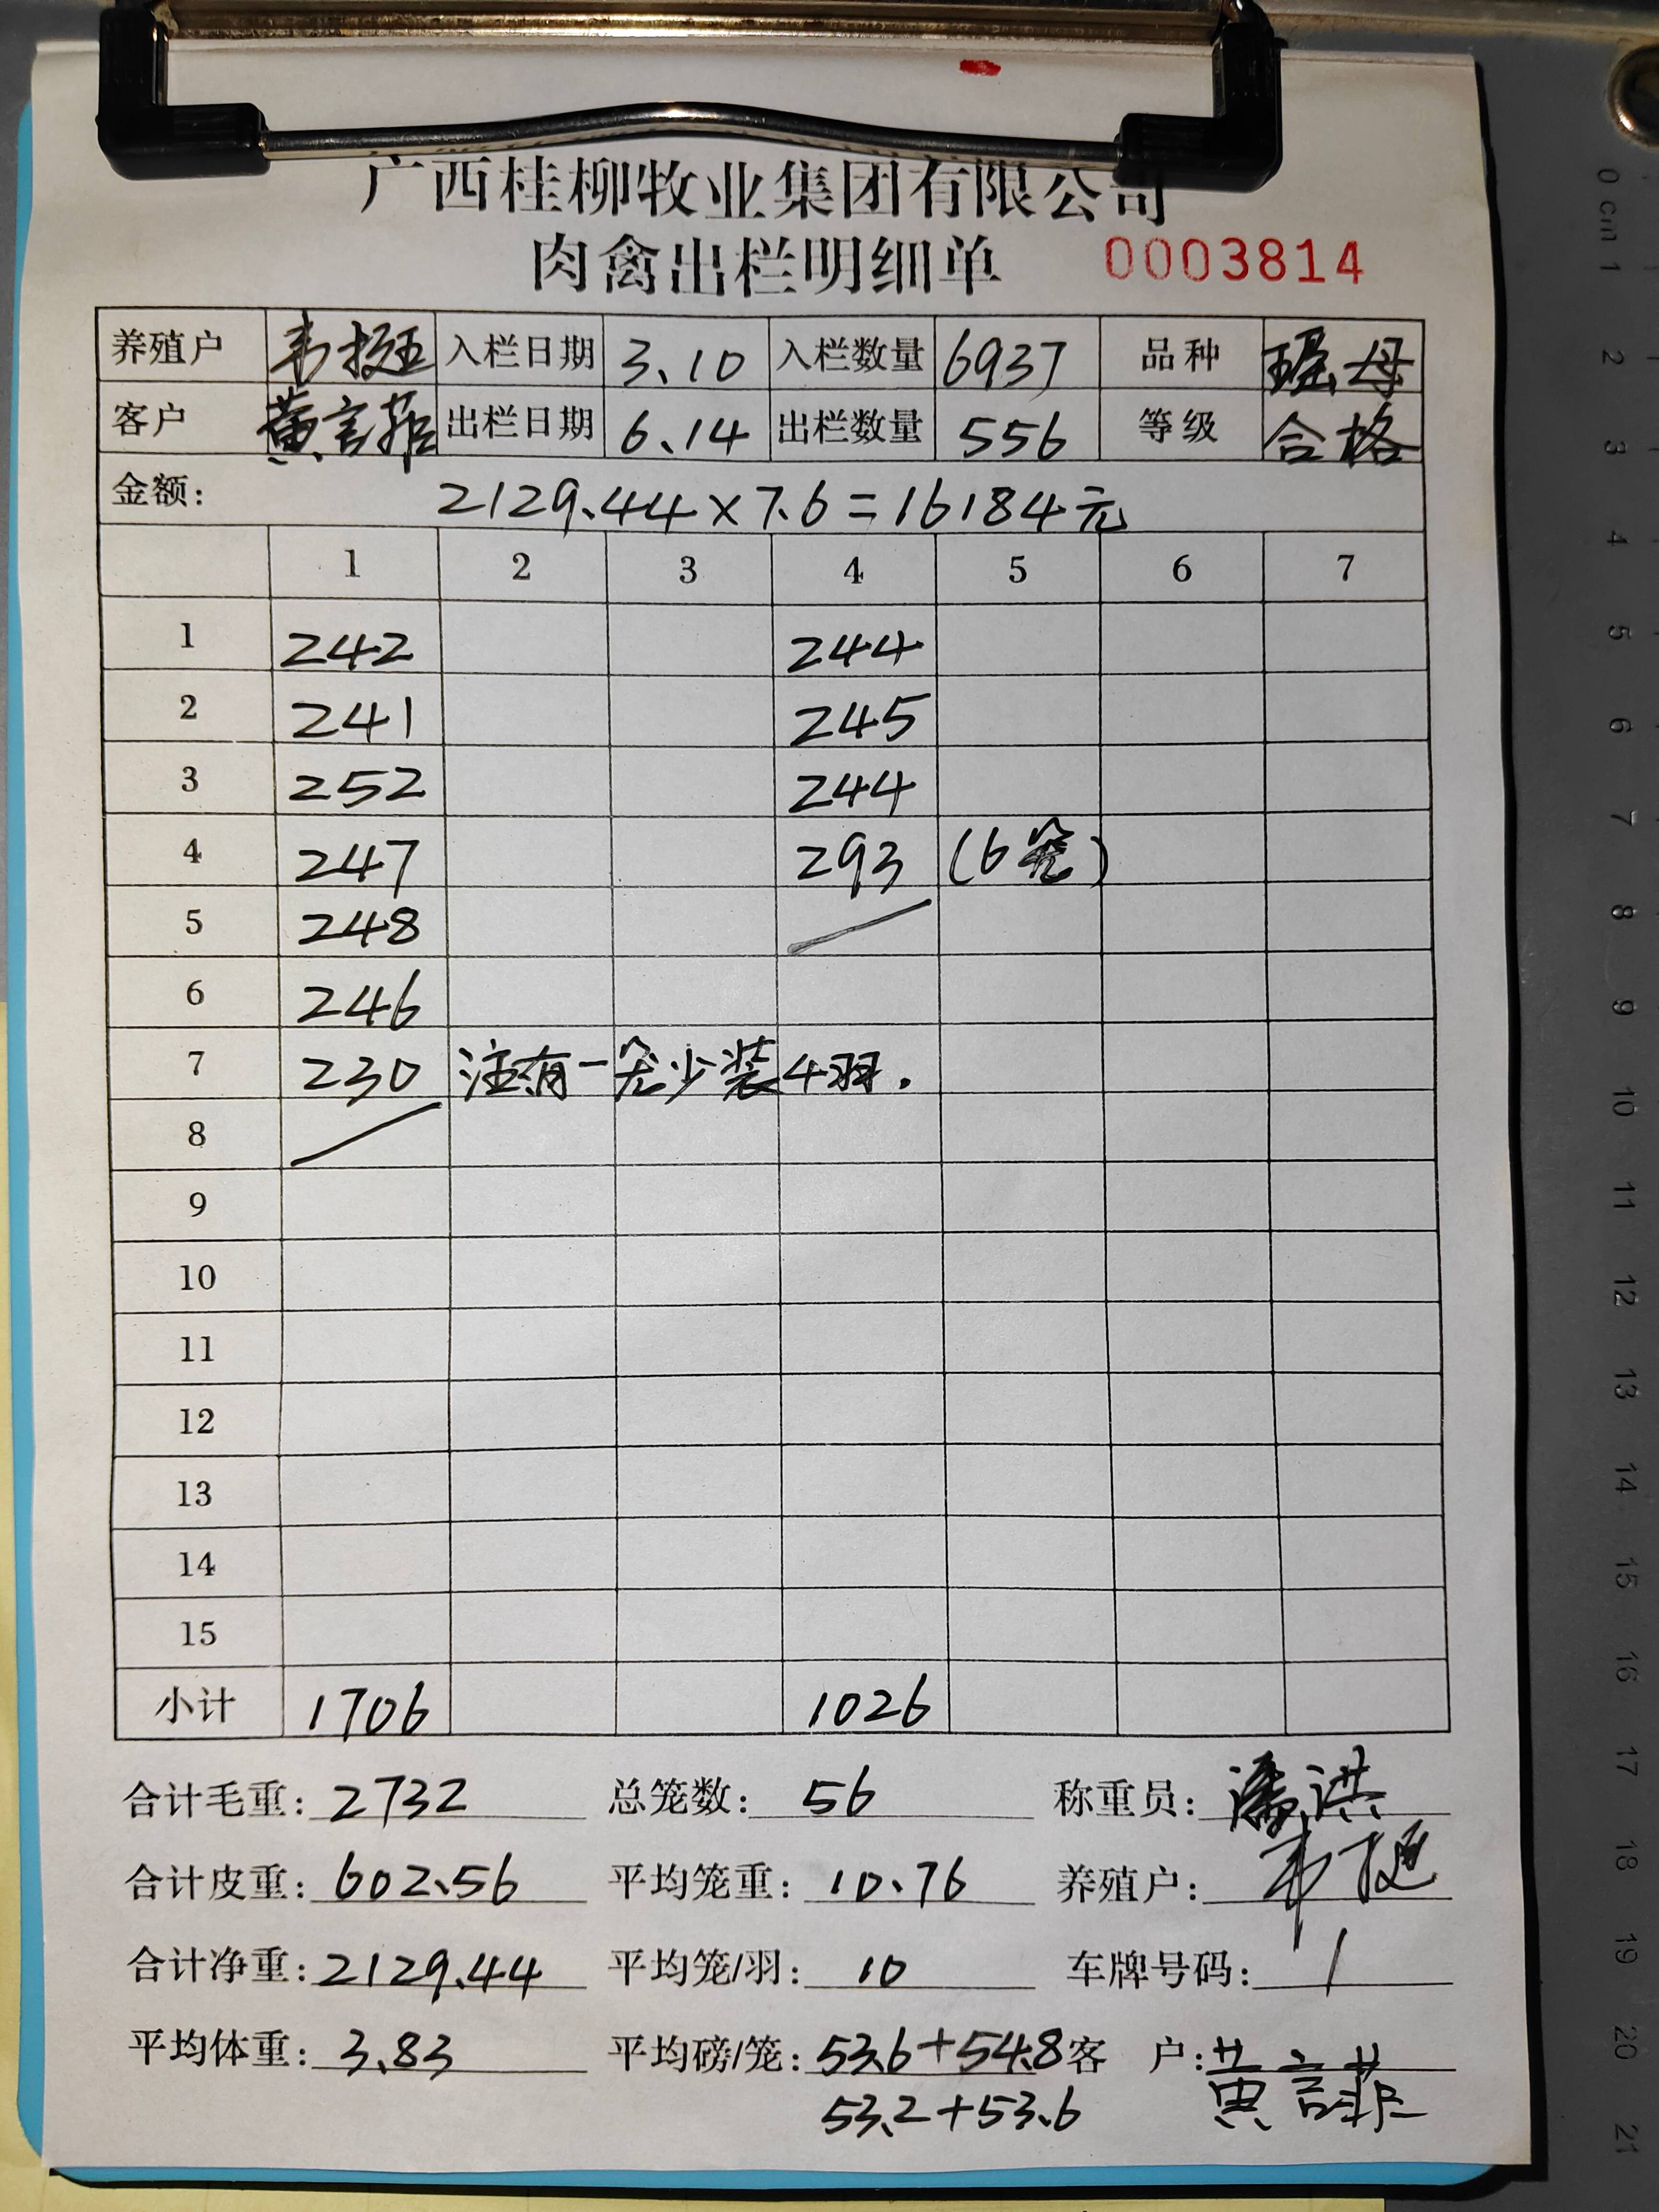 广西桂柳牧业集团有限公司
肉禽出栏明细单 0003814
养殖户 韦挺 入栏日期 3.10 入栏数量 6937 品种 瑶母
客户 黄言菲 出栏日期 6.14 出栏数量 556 等级 合格
金额: 2129.44×7.6=16184元
1 2 3 4 5 6 7
1 242 244
2 241 245
3 252 244
4 247 293 (6笼)
5 248
6 246
7 230 注有一笼少装4羽.
8
9
10
11
12
13
14
15
小计 1706 1026
合计毛重: 2732 总笼数: 56 称重员: 潘洪
合计皮重: 602.56 平均笼重: 10.76 养殖户: 韦挺
合计净重: 2129.44 平均笼/羽: 10 车牌号码: /
平均体重: 3.83 平均磅/笼: 53.6+54.8 客户: 黄言菲
53.2+53.6
0 cm 1 2 3 4 5 6 7 8 9 10 11 12 13 14 15 16 17 18 19 20 21